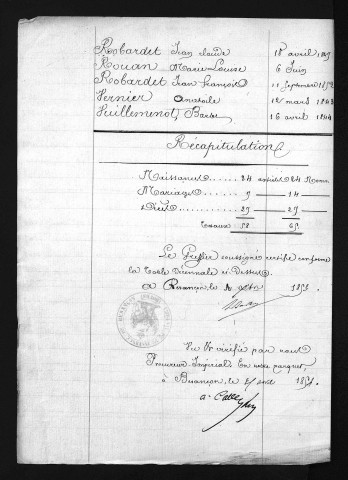 Robardet Jean Claude 18 avril
Rouan Marie Louise 6 Juin
Robardet Jean François 11 Septembre
Vernier Anatole 12 mars
Vuillemenot Barbe 16 avril 1844
Récapitulation
Naissances 24 actes 24 Noms
Mariages 9 14
Décès 25
Totaux 58
Le Greffier soussigné certifie conforme
la Table Décennale ci-Dessus
a Besançon le
Vu & vérifié par nous
Procureur Impérial En notre parquet
à Besançon, le